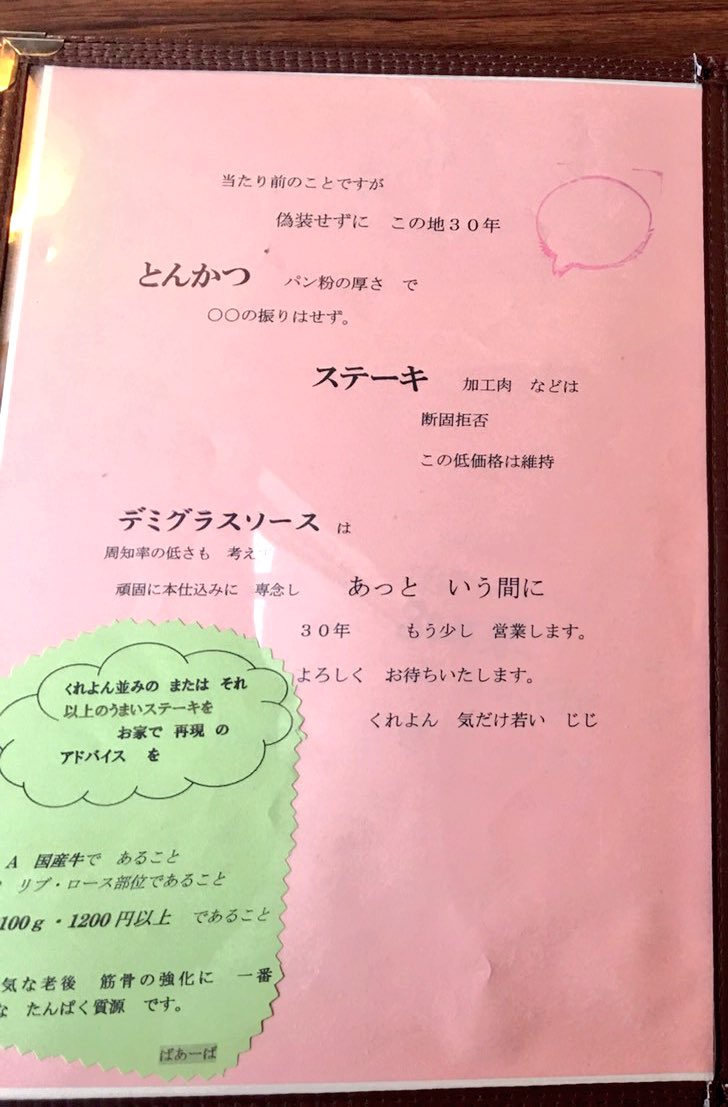 当たり前のことですが
偽装せずに この地30年
とんかつ パン粉の厚さ で
〇〇の振りはせず。
ステーキ 加工肉 などは
断固拒否
この低価格は維持
デミグラスソース は
周知率の低さも 考えず
頑固に本仕込みに 専念し あっと いう間に
30年 もう少し 営業します。
よろしく お待ちいたします。
くれよん 気だけ若い じじ
くれよん並みの または それ
以上のうまいステーキを
お家で 再現 の
アドバイス を
A 国産牛で あること
リブ・ロース部位であること
100g・1200円以上 であること
気な老後 筋骨の強化に 一番
な たんぱく質源 です。
ばあーば